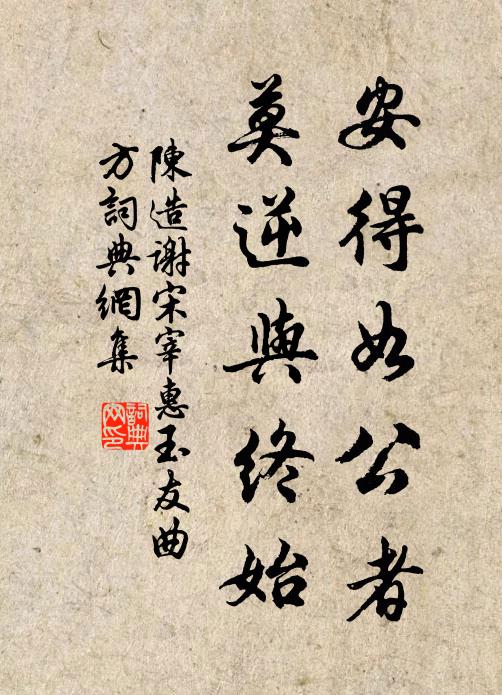 安得如公者
莫逆與終始
陳造謝宋宰惠玉友曲
方詞典網集
詞典
網印